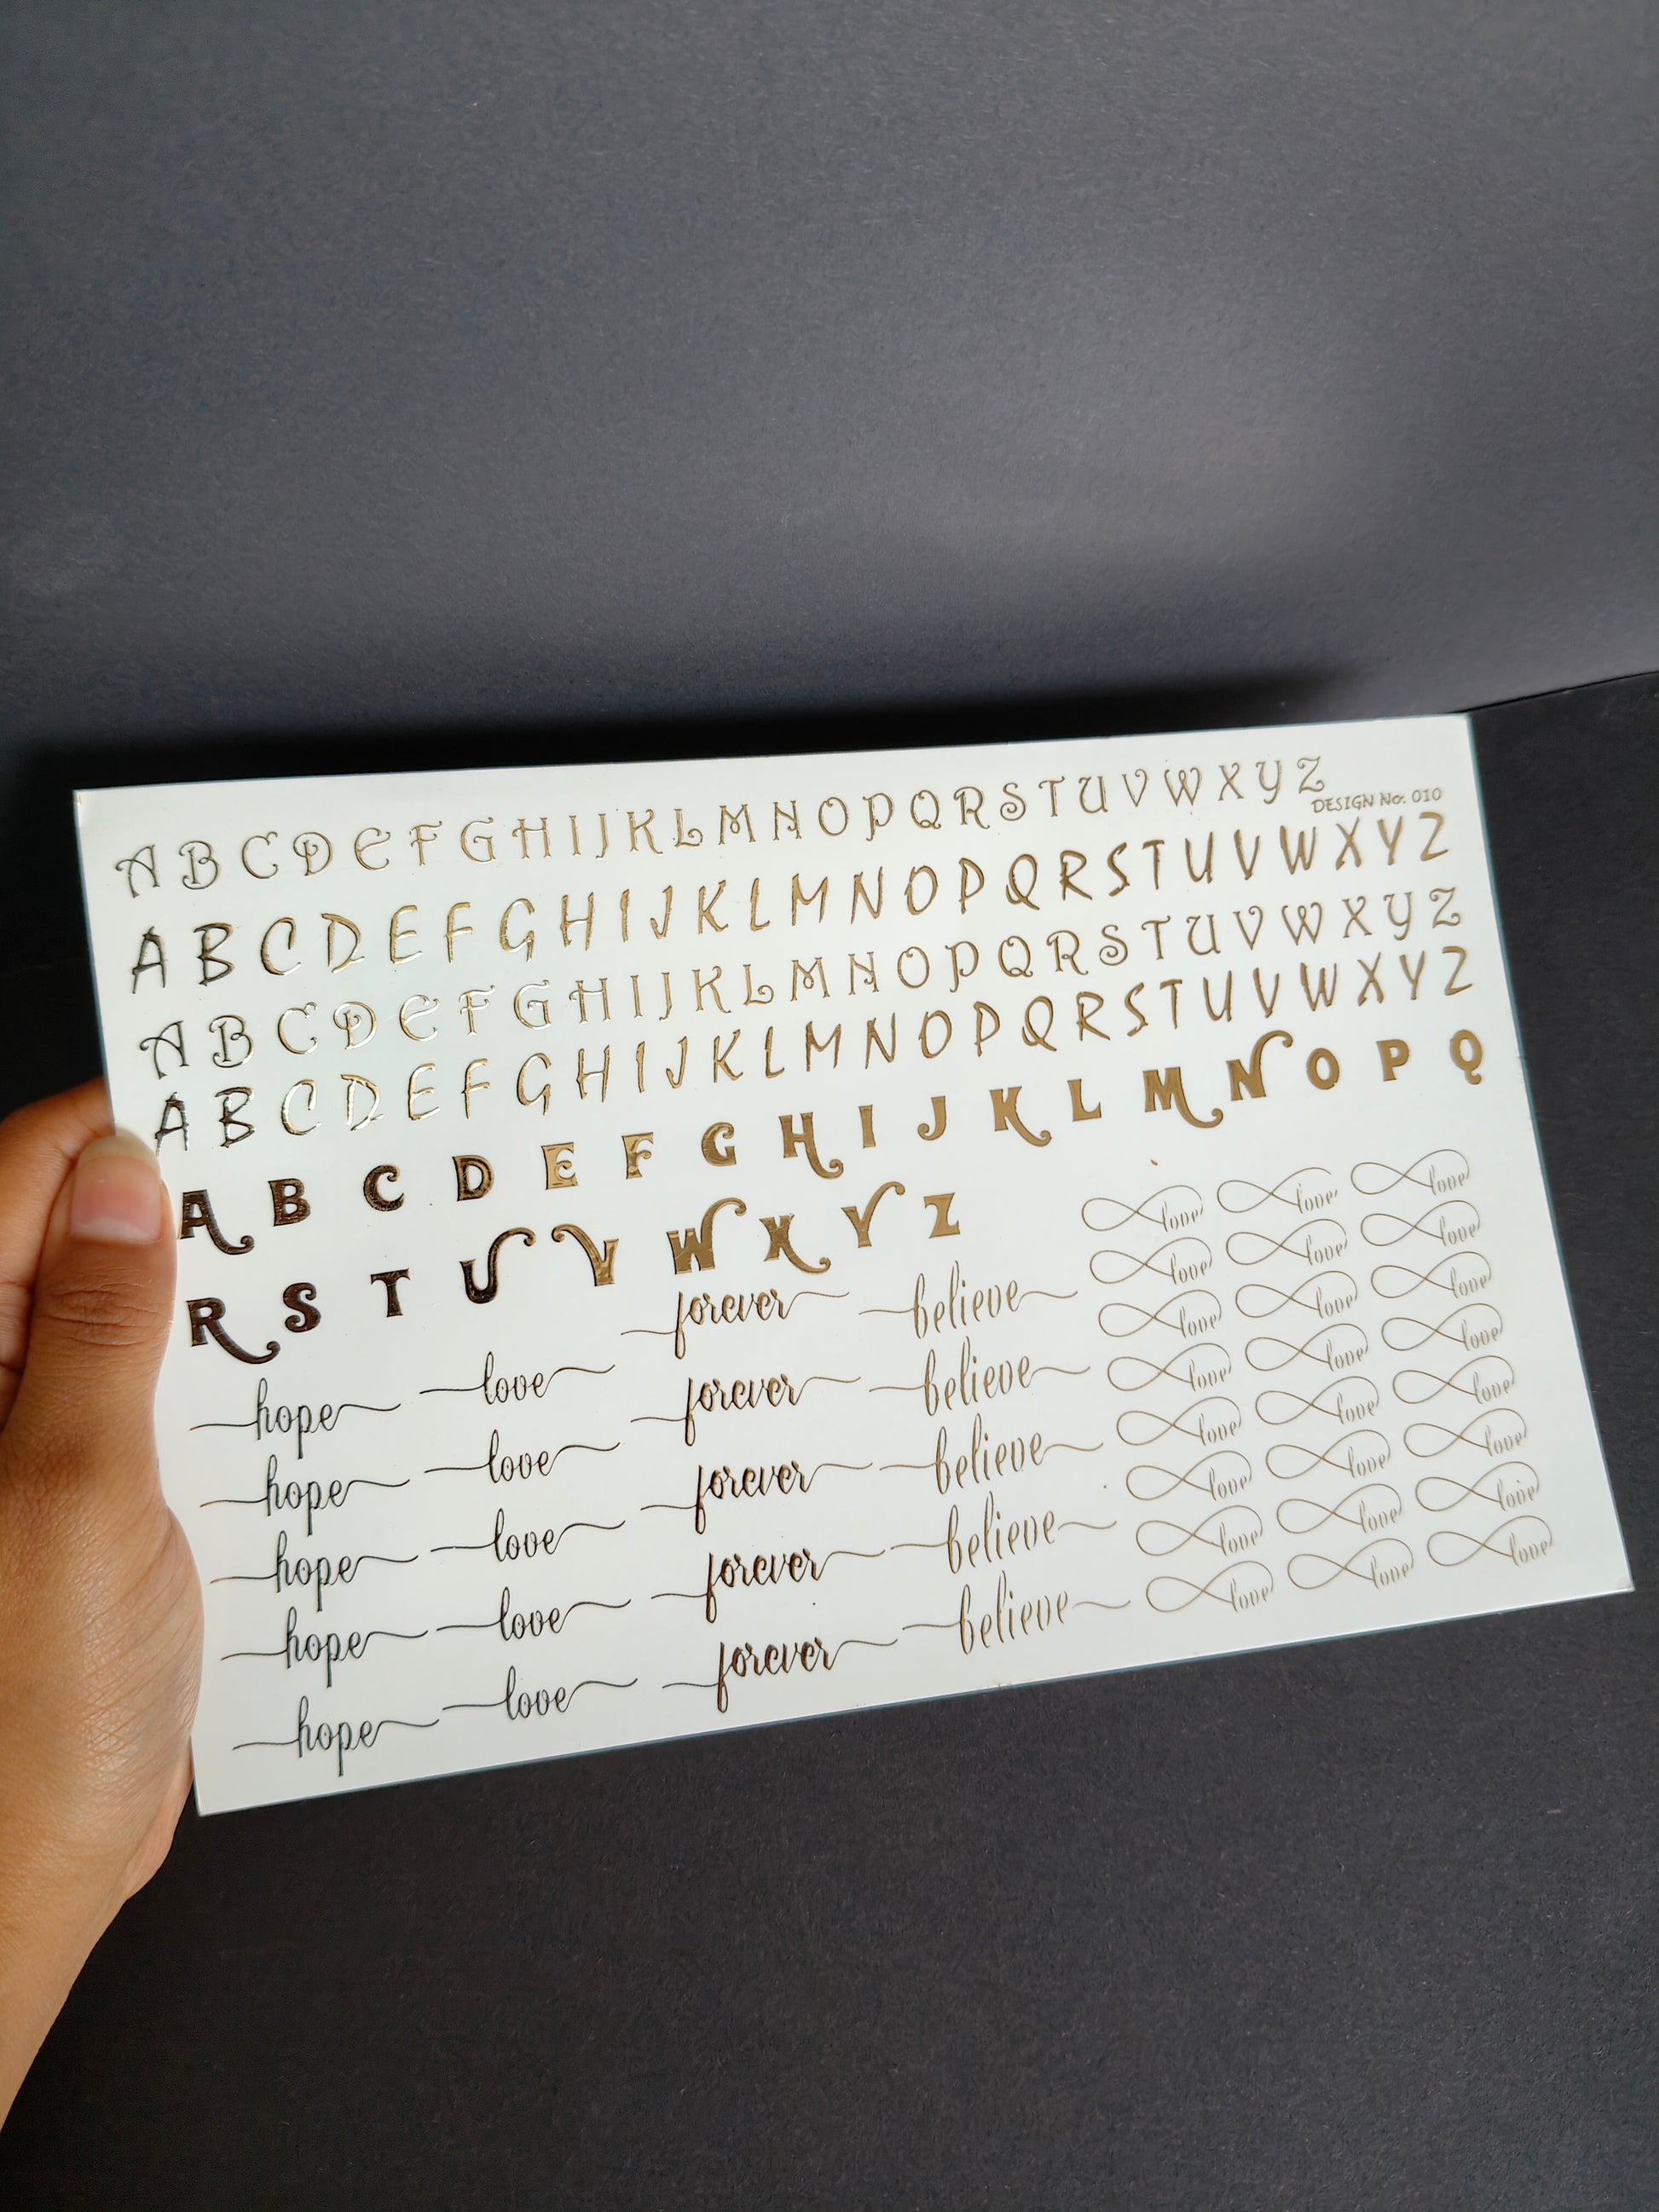 A B C D E F G H I J K L M N O P Q R S T U V W X Y Z
DESIGN No. 010
A B C D E F G H I J K L M N O P Q R S T U V W X Y Z
A B C D E F G H I J K L M N O P Q R S T U V W X Y Z
A B C D E F G H I J K L M N O P Q R S T U V W X Y Z
A B C D E F G H I J K L M N O P Q
R S T U V W X Y Z
hope love forever believe
hope love forever believe
hope love forever believe
hope love forever believe
hope love forever believe
love love love
love love love
love love love
love love love
love love love
love love love
love love love
love love love